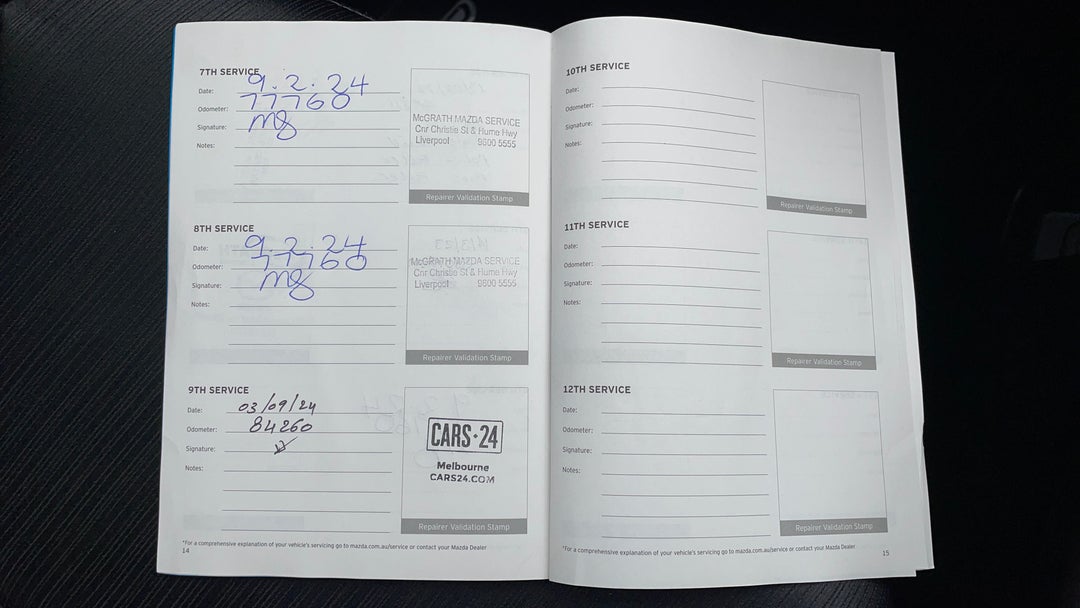 7TH SERVICE
Date: 9.2.24
Odometer: 77760
Signature: mg
Notes:
McGRATH MAZDA SERVICE
Cnr Christie St & Hume Hwy
Liverpool 9600 5555
Repairer Validation Stamp
8TH SERVICE
Date: 9.2.24
Odometer: 77760
Signature: mg
Notes:
McGRATH MAZDA SERVICE
Cnr Christie St & Hume Hwy
Liverpool 9600 5555
Repairer Validation Stamp
9TH SERVICE
Date: 03/09/24
Odometer: 84260
Signature:
Notes:
CARS·24
Melbourne
CARS24.COM
Repairer Validation Stamp
*For a comprehensive explanation of your vehicle's servicing go to mazda.com.au/service or contact your Mazda Dealer
14
10TH SERVICE
Date:
Odometer:
Signature:
Notes:
Repairer Validation Stamp
11TH SERVICE
Date:
Odometer:
Signature:
Notes:
Repairer Validation Stamp
12TH SERVICE
Date:
Odometer:
Signature:
Notes:
Repairer Validation Stamp
*For a comprehensive explanation of your vehicle's servicing go to mazda.com.au/service or contact your Mazda Dealer
15